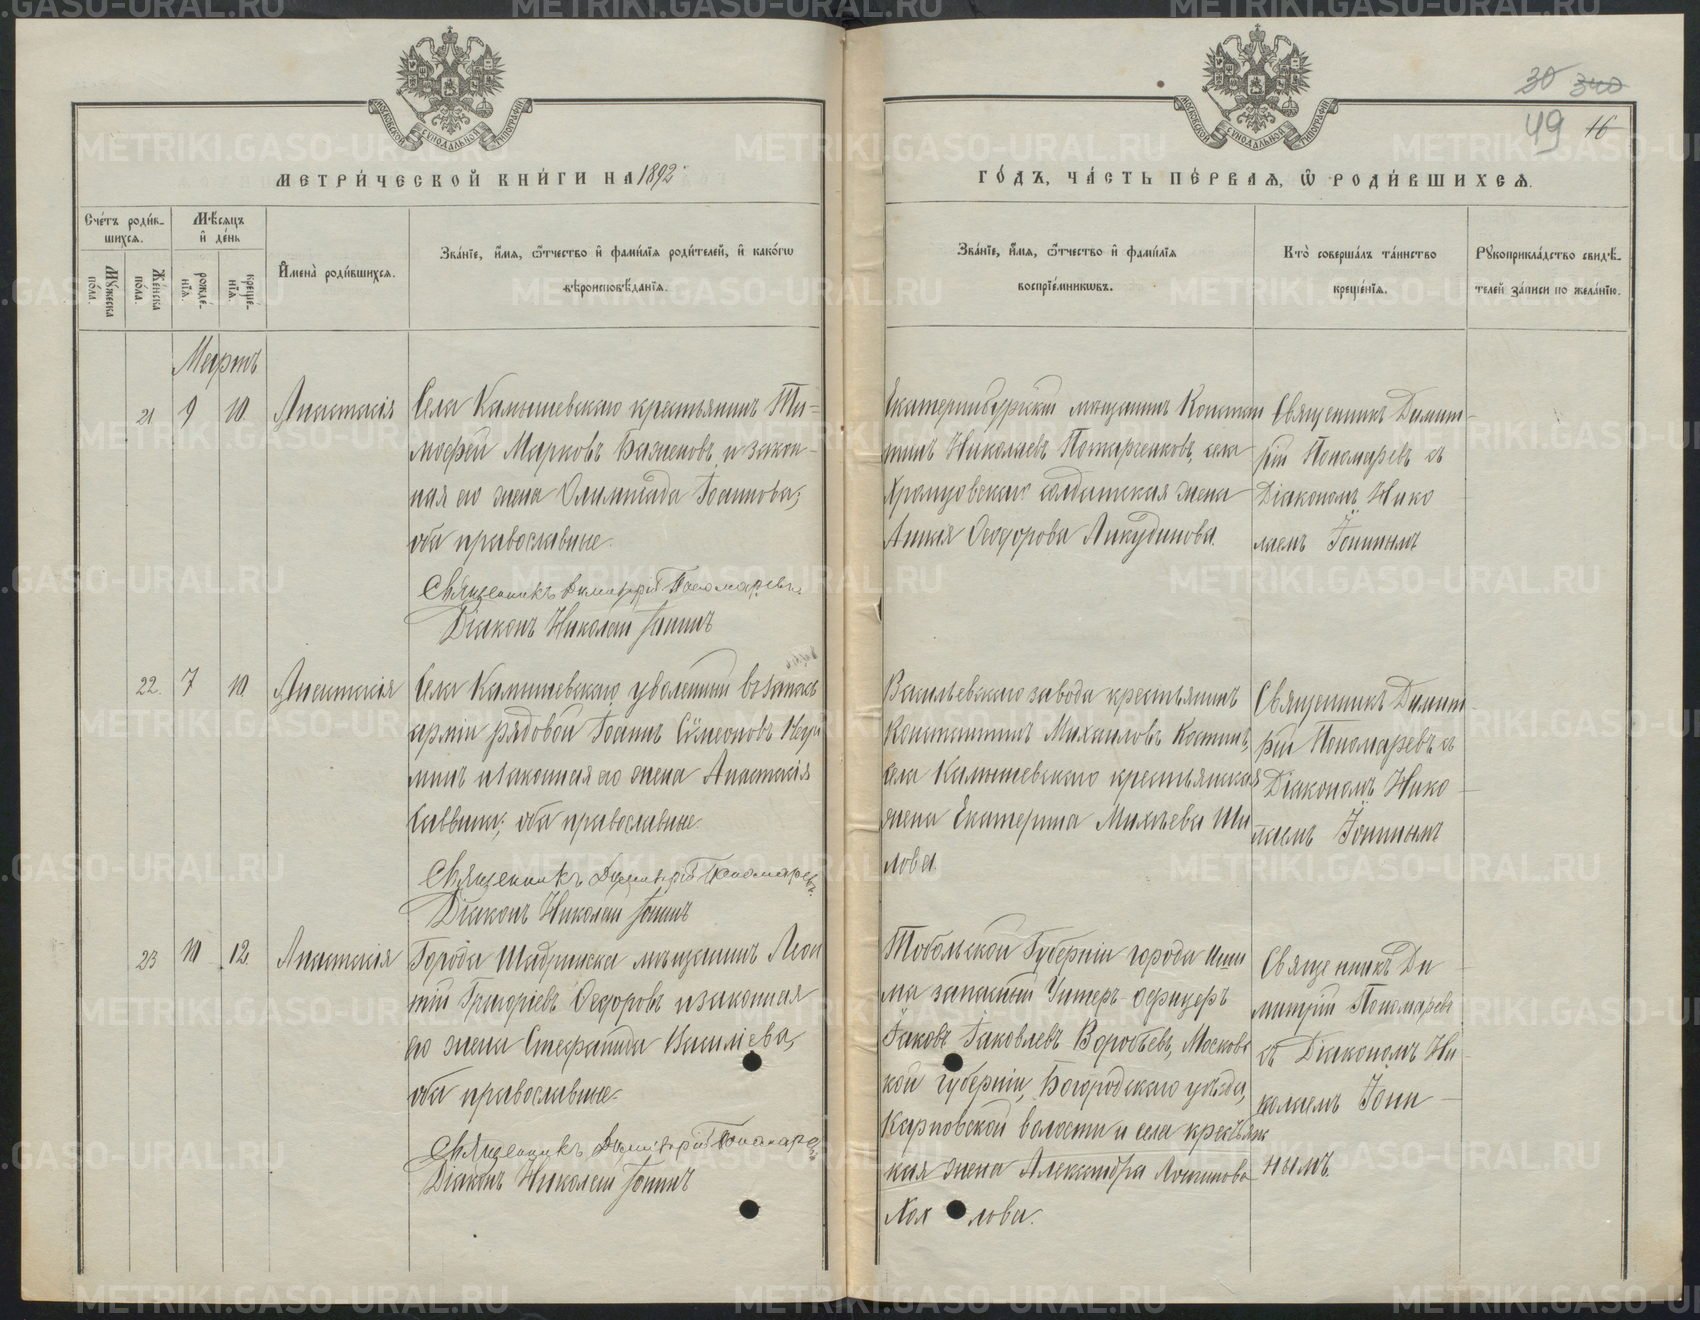 30 340
49 16
МЕТРИ́ЧЕСКОЙ КНИ́ГИ НА 1892
ГО́ДЪ, ЧА́СТЬ ПЕ́РВАЯ, Ѿ РОДИ́ВШИХСЯ.
Сче́тъ роди́в-
шихся.
Мѣ́сяцъ
и҆ де́нь
Мꙋ́жеска
по́ла.
Же́нска
по́ла.
рожде́-
нїѧ.
креще́-
нїѧ.
И҆мена̀ роди́вшихся.
Зва́нїе, и҆́мя, ѻ҆́тчество и҆ фами́лїя роди́телей, и҆ како́гѡ
вѣроисповѣ́данїя.
Зва́нїе, и҆́мя, ѻ҆́тчество и҆ фами́лїя
воспрїе́мникѡвъ.
Кто̀ соверша́лъ та́инство
креще́нїя.
Рꙋкоприкла́дство свидѣ́-
телей за́писи по жела́нїю.
Мартъ
21 9 10 Анастасія
Села Камышевскаго крестьянинъ Ти-
мофей Марковъ Баженовъ и закон-
ная его жена Олимпіада Іоаннова,
оба православные.
Священникъ Димитрій Пономаревъ
Діаконъ Николай Іонинъ
Екатеринбургскій мещанинъ Констан
тинъ Николаевъ села
солдатская жена
Анна Ѳеодорова Ликудинова.
Священникъ Димит-
рій Пономаревъ съ
Діакономъ Нико
лаемъ Іонинымъ
22. 7 10 Анастасія
Села Камышевскаго уволенный въ запасъ
арміи рядовой Іоаннъ Сѵмеоновъ
и законная его жена Анастасія
Саввина; оба православные.
Священникъ Димитрій Пономаревъ
Діаконъ Николай Іонинъ
Васильевскаго завода крестьянинъ
Константинъ Михаиловъ Костинъ,
села Камышевскаго крестьянская
жена Екатерина Михѣева Ши
лова
Священникъ Димит-
рій Пономаревъ съ
Діакономъ Нико-
лаемъ Іонинымъ
23 10 12 Анастасія
Города Шадринска мѣщанинъ Леон
тій Григоріевъ Ѳеодоровъ и законная
его жена Стефанида Василіева,
оба православные.
Священникъ Димитрій Пономаревъ
Діаконъ Николай Іонинъ
Тобольской Губерніи города Иши
ма запасный Унтеръ-офицеръ
Іаковъ Іаковлевъ Воробьевъ, Московс
кой губерніи, Богородскаго уѣзда,
Карповской волости и села крестьянс
кая жена Александра Логинова
Хох лова.
Священникъ Ди-
митрій Пономаревъ
съ Діакономъ Ни-
колаемъ Іони-
нымъ.